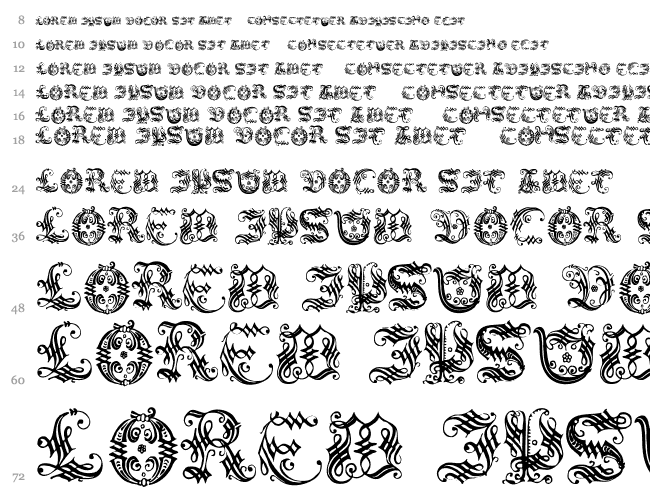 8 LOREM IPSUM DOLOR SIT AMET CONSECTETUER ADIPISCING ELIT
10 LOREM IPSUM DOLOR SIT AMET CONSECTETUER ADIPISCING ELIT
12 LOREM IPSUM DOLOR SIT AMET CONSECTETUER ADIPISCING ELI
14 LOREM IPSUM DOLOR SIT AMET CONSECTETUER ADIPIS
16 LOREM IPSUM DOLOR SIT AMET CONSECTETUER A
18 LOREM IPSUM DOLOR SIT AMET CONSECTET
24 LOREM IPSUM DOLOR SIT AMET
36 LOREM IPSUM DOLOR S
48 LOREM IPSUM DO
60 LOREM IPSU
72 LOREM IPS